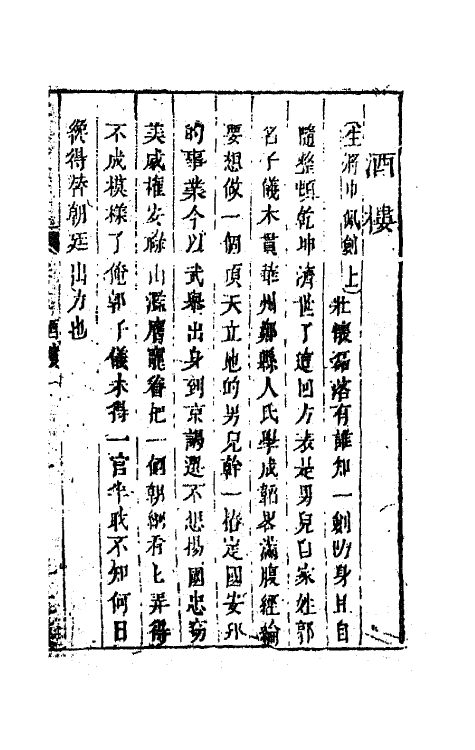 酒樓
(生將巾佩劍上)壯懷磊落有誰知一劍防身且自
隨整頓乾坤濟世了還回方表是男兒自家姓郭
名子儀本貫華州鄭縣人氏學成韜畧滿腹經綸
要想做一個頂天立地的男兒幹一樁定國安邦
的事業今以武舉出身到京謁選不想楊國忠竊
美威權安祿山濫膺寵眷把一個朝綱看上弄得
不成模樣了俺郭子儀未得一官半職不知何日
纔得替朝廷出力也
酒樓 一